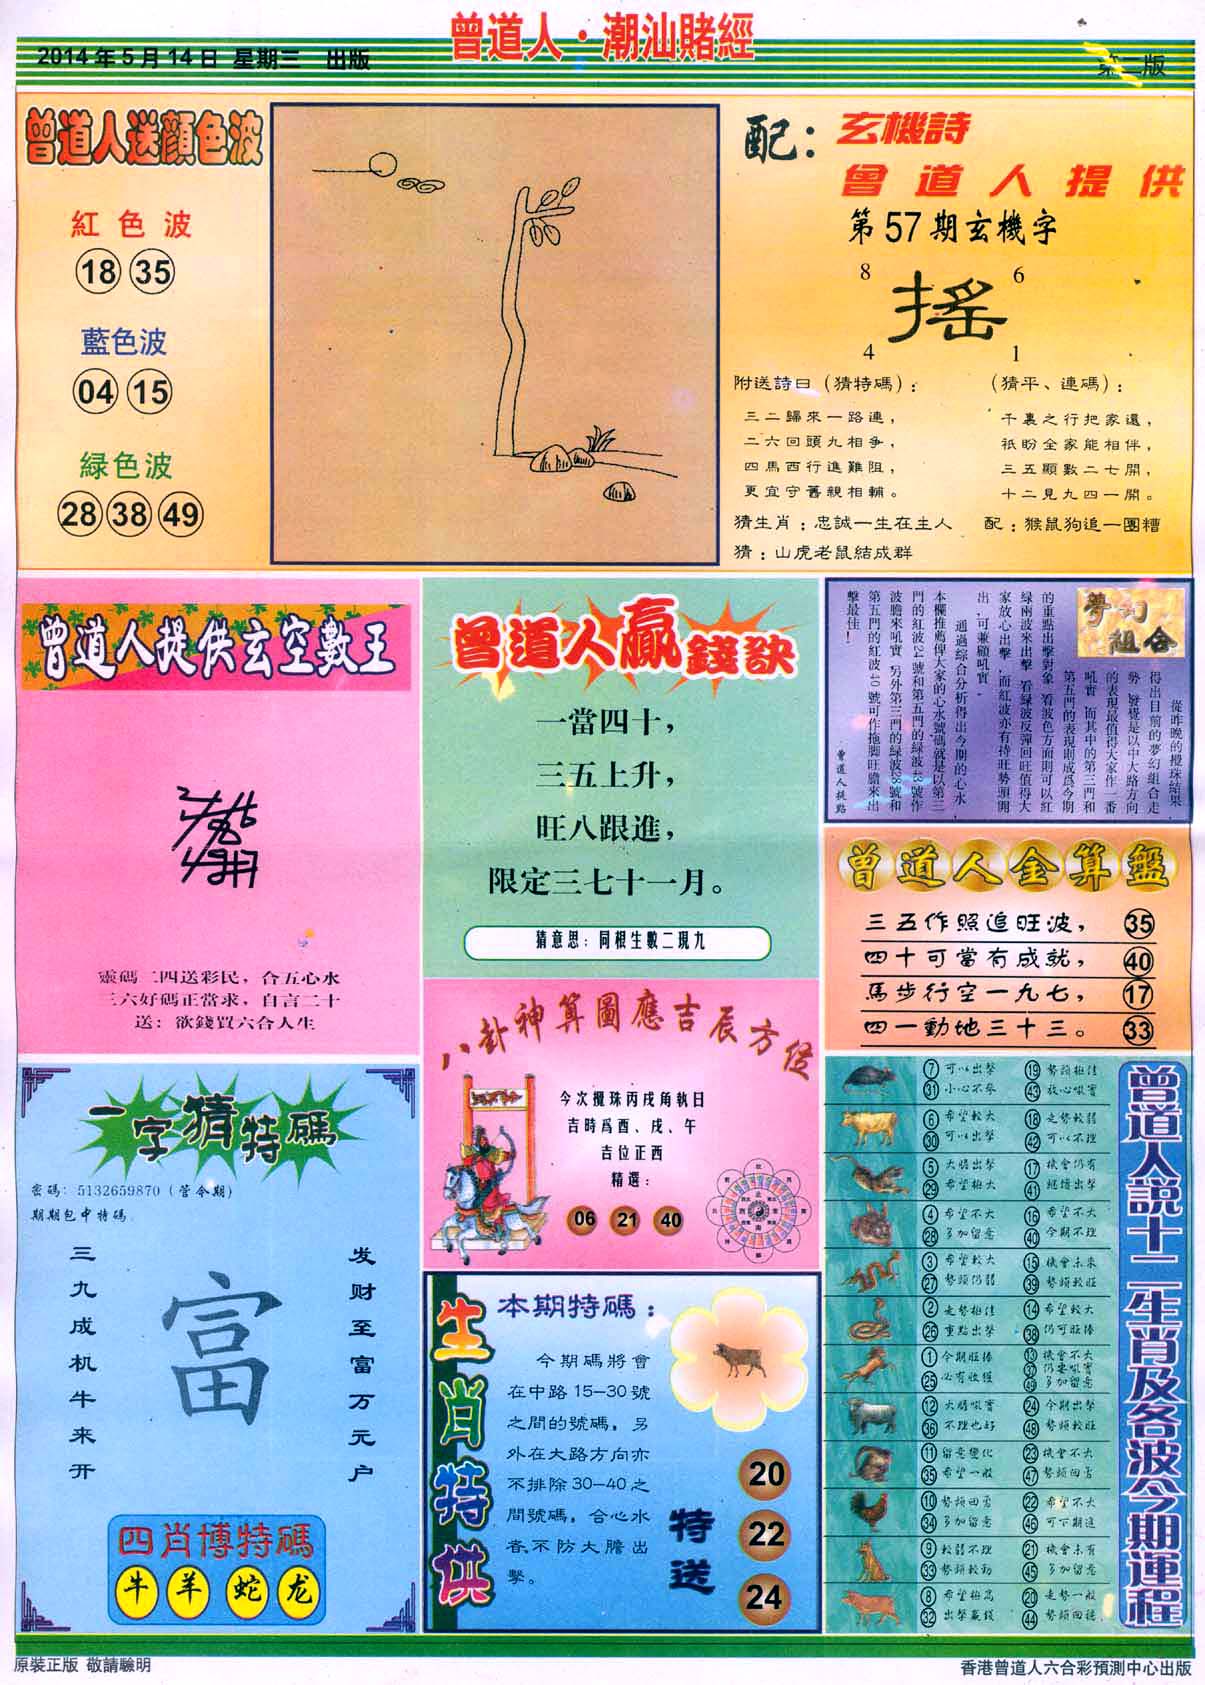 曾道人·潮汕賭經
2014年5月14日 星期三 出版
第二版
曾道人送顔色波
紅色波
18 35
藍色波
04 15
緑色波
28 38 49
配：玄機詩
曾道人提供
第57期玄機字
8 6
搖
4 1
附送詩曰（猜特碼）：
三二歸來一路連，
二六回頭九相爭，
四馬西行進難阻，
更宜守舊親相輔。
（猜平、連碼）：
千裏之行把家還，
祇盼全家能相伴，
三五顯數二七開，
十二見九四一開。
猜生肖：忠誠一生在主人
配：猴鼠狗追一團糟
猜：山虎老鼠結成群
曾道人提供玄空數王
靈碼二四送彩民，合五心水
三六好碼正當求，自言二十
送：欲錢買六合人生
曾道人贏錢訣
一當四十，
三五上升，
旺八跟進，
限定三七十一月。
猜意思：同根生數二現九
夢幻組合
從昨晚的攪珠結果
得出目前的夢幻組合走
勢，發覺是以中大路方向
的表現最值得大家作一番
吼實，而其中的第三門和
第五門的表現則成爲今期
的重點出擊對象，看波色方面則可以紅
緑兩波來出擊，看緑波反彈回旺值得大
家放心出擊，而紅波亦有持旺勢頭開
出，可兼顧吼實。
通過綜合分析得出今期的心水
本欄推薦俾大家的心水號碼就是以第三
門的紅波24號和第五門的緑波43號作
波膽來吼實，另外第三門的緑波28號和
第五門的紅波40號可作拖脚旺膽來出
擊最佳！
·曾道人提點
曾道人金算盤
三五作照追旺波， 35
四十可當有成就， 40
馬步行空一九七， 17
四一動地三十三。 33
八卦神算圖應吉辰方位
今次攪珠丙戌角執日
吉時爲酉、戌、午
吉位正西
精選：
06 21 40
一字猜特碼
密碼：5132659870（管令期）
期期包中特碼
三九成机牛来开
富
发财至富万元户
四肖博特碼
牛 羊 蛇 龙
生肖特供
本期特碼：
今期碼將會
在中路15—30號
之間的號碼，另
外在大路方向亦
不排除30—40之
間號碼，合心水
者，不防大膽出
擊。
特送
20
22
24
曾道人說十二生肖及各波今期運程
7 可以出擊 19 勢頭極佳
31 小心不參 43 放心吼實
6 希望較大 18 走勢較弱
30 可以出擊 42 可以不理
5 大膽出擊 17 機會仍有
29 希望極大 41 繼續出擊
4 希望不大 16 希望不大
28 多加留意 40 今期不理
3 希望較大 15 機會未來
27 勢頭仍弱 39 勢頭較旺
2 走勢極佳 14 希望較大
26 重點出擊 38 仍可旺捧
1 今期旺捧 13 機會不大
25 必有收獲 37 仍要吼實
49 多加留意
12 大膽吼實 24 今期出擊
36 不理也好 48 勢頭較旺
11 留意變化 23 機會不大
35 希望一般 47 勢頭回勇
10 勢頭回勇 22 希望不大
34 多加留意 46 可下期追
9 較弱不理 21 機會未有
33 勢頭較勁 45 多加留意
8 希望極高 20 走勢一般
32 出擊贏錢 44 勢頭回穩
原裝正版 敬請驗明
香港曾道人六合彩預測中心出版